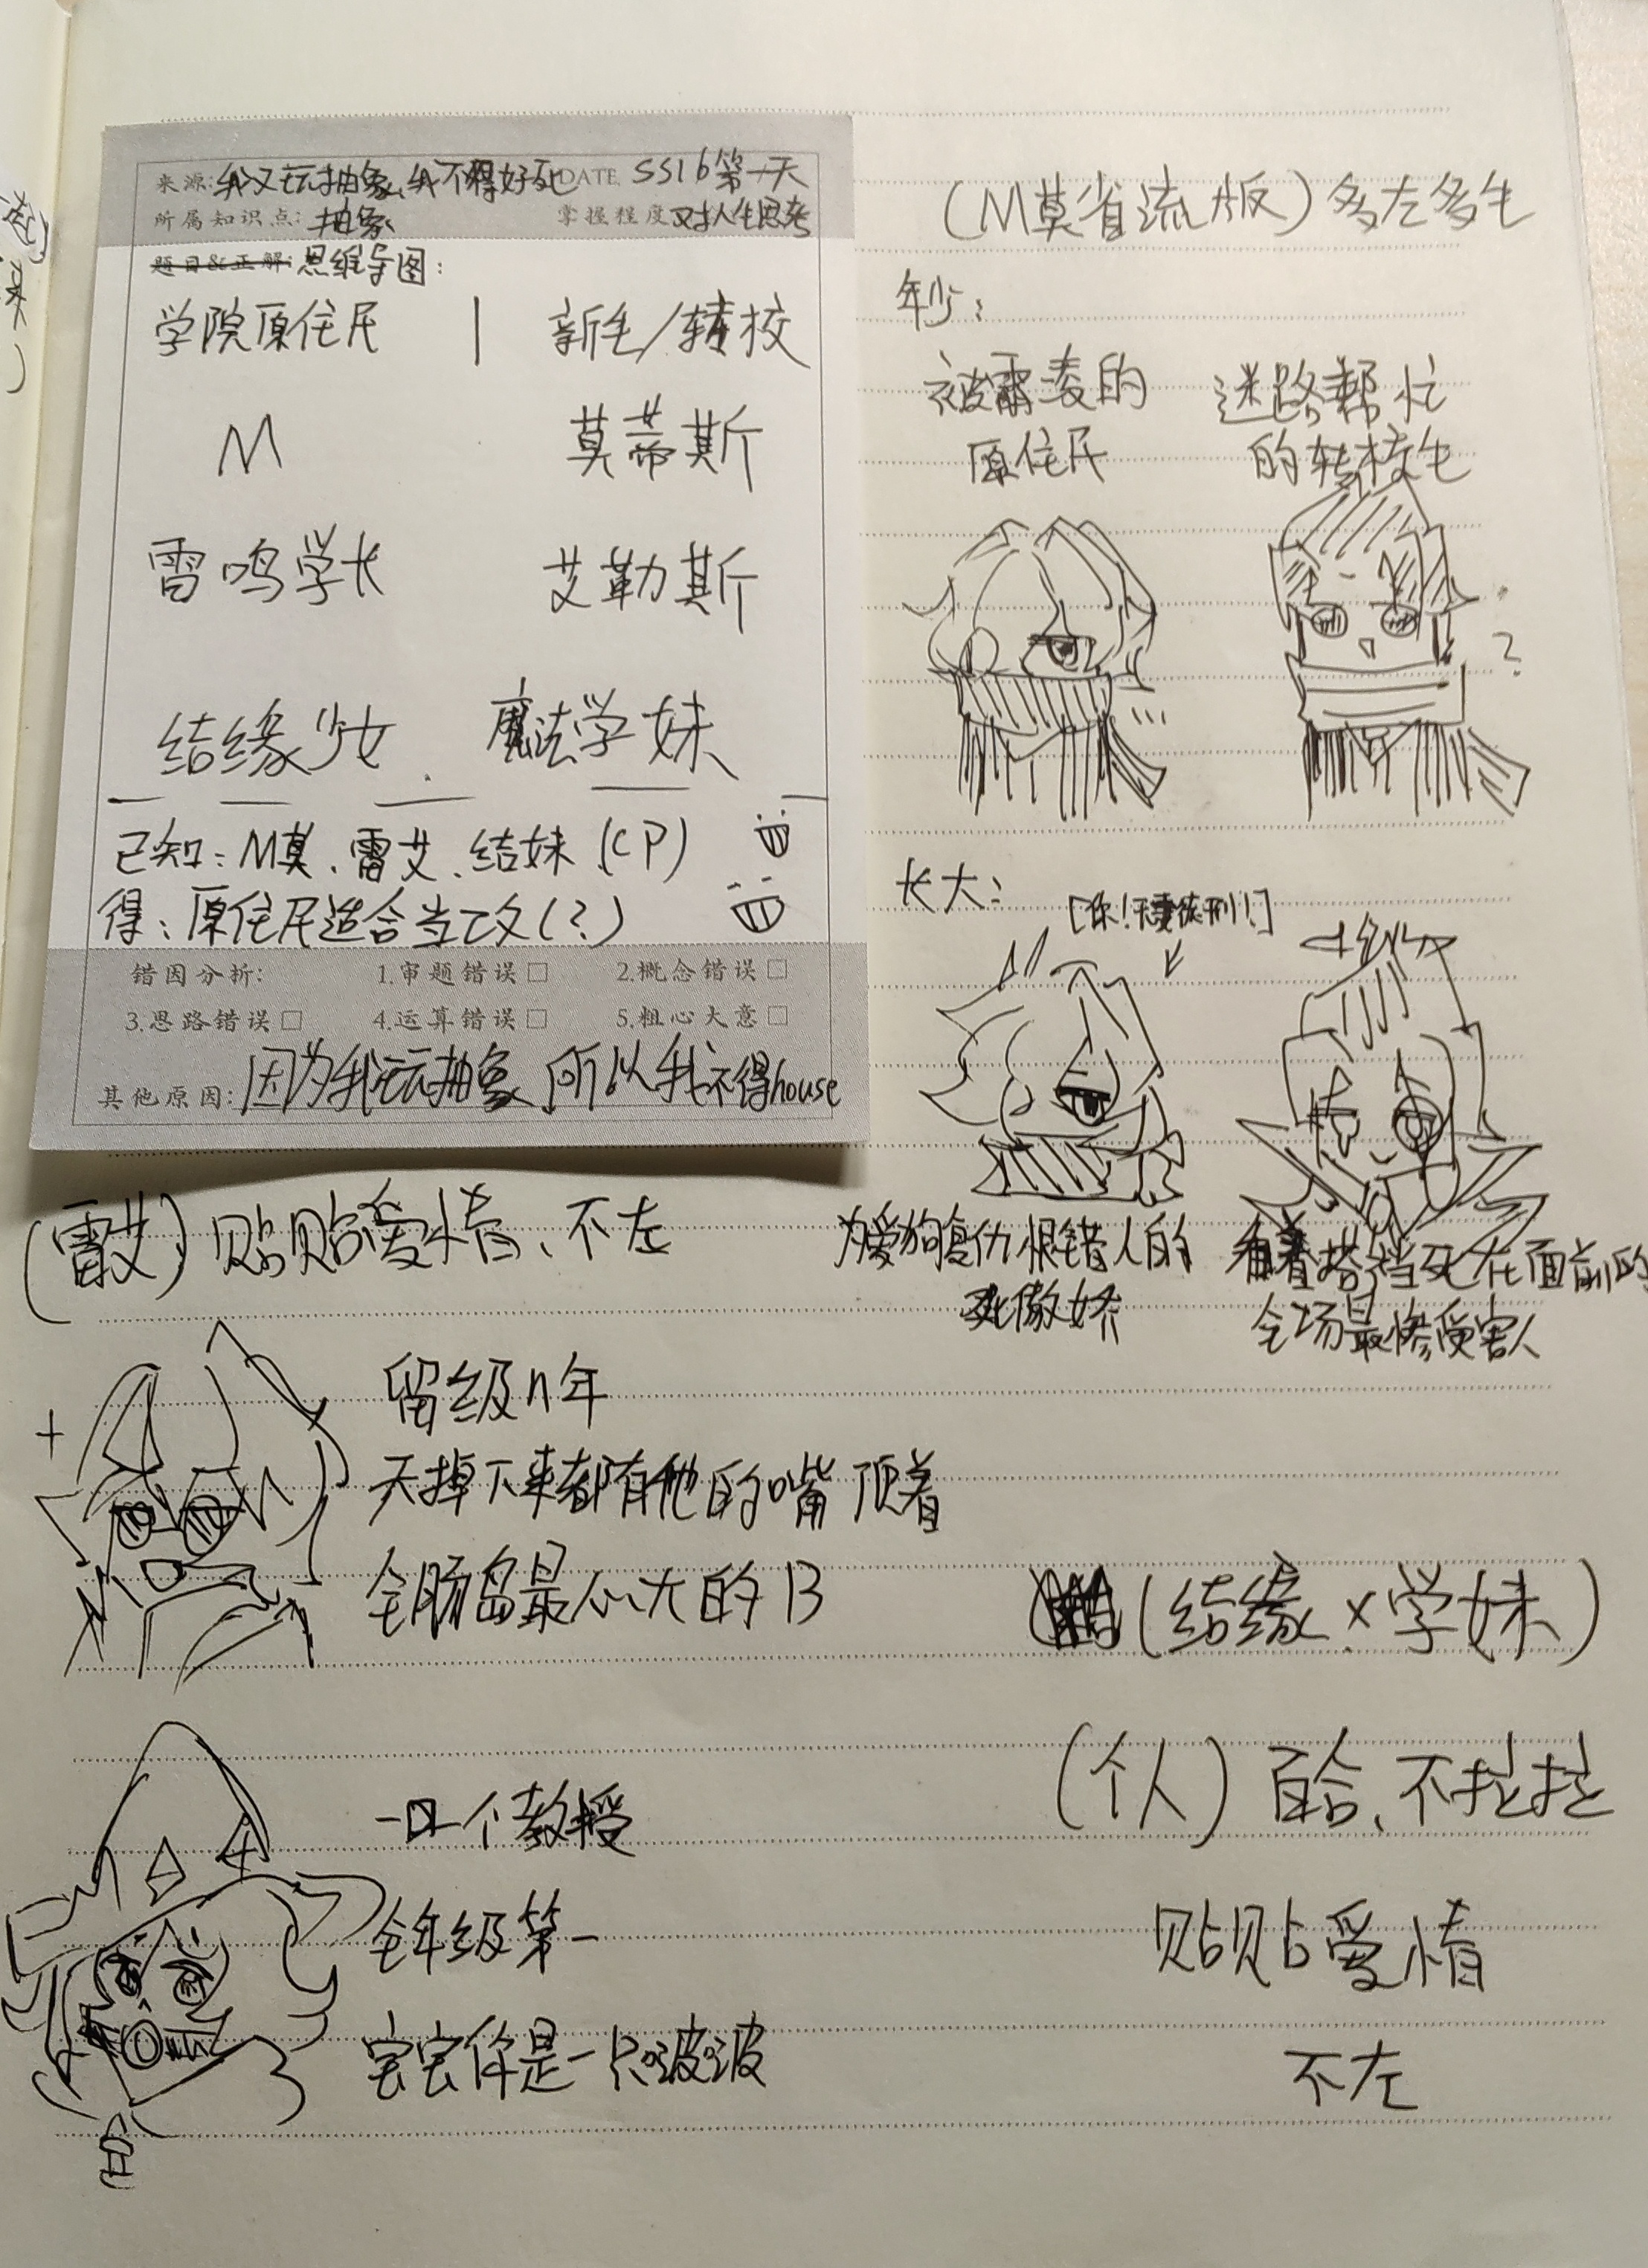 来源:我又玩抽象,我不得好死 DATE SS16第一天
所属知识点:抽象 掌握程度 对人生思考
题目&正解:思维导图:
学院原住民 | 新生/转校
M 莫蒂斯
雷鸣学长 艾勒斯
结缘少女 魔法学妹
已知:M莫、雷艾、结妹(CP)
得:原住民适合当攻(?)
错因分析: 1.审题错误□ 2.概念错误□
3.思路错误□ 4.运算错误□ 5.粗心大意□
其他原因:因为我玩抽象 所以我不得house
(M莫省流版)多左多生
年少:
被霸凌的原住民
迷路帮忙的转校生
?
长大:
[你!!]
为爱狗复仇恨错人的
死傲娇
看着搭档死在面前的
全场最惨受害人
(雷艾)贴贴爱情、不左
留级n年
天掉下来都有他的嘴顶着
全肠岛最心大的B
一口一个教授
全年级第一
宝宝你是一只波波
(结缘×学妹)
(个人)百合、不扯扯
贴贴爱情
不左